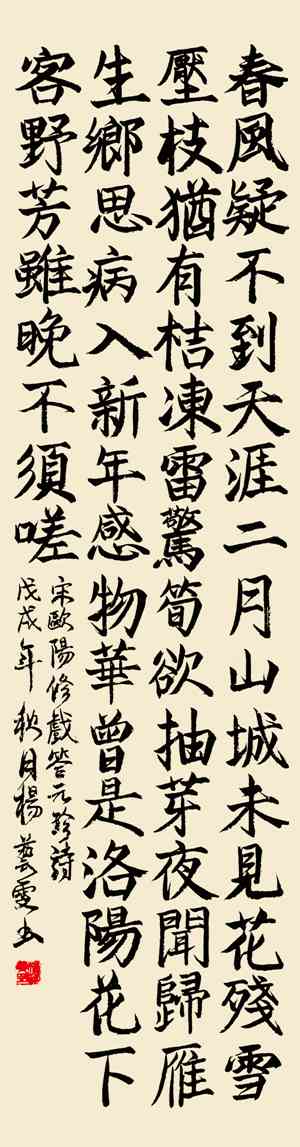 春風疑不到天涯二月山城未見花殘雪
壓枝猶有桔凍雷驚筍欲抽芽夜聞歸雁
生鄉思病入新年感物華曾是洛陽花下
客野芳雖晚不須嗟
宋歐陽修戲答元珍詩
戊戌年秋月楊藝雯书